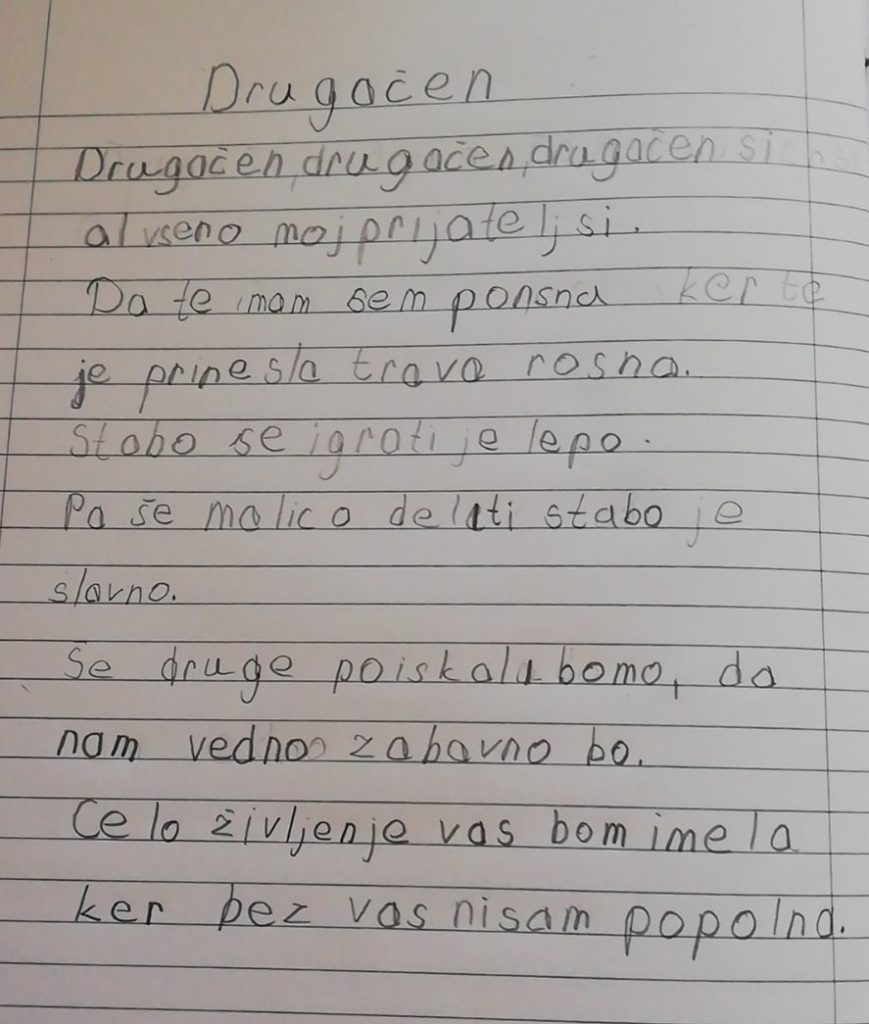 Drugačen
Drugačen, drugačen, drugačen si
al vseno moj prijatelj si.
Da te imam sem ponsna ker te
je prinesla trava rosna.
Stabo se igrati je lepo.
Pa še malico delati stabo je
slavno.
Še druge poiskala bomo, da
nam vedno zabavno bo.
Celo življenje vas bom imela
ker bez vas nisam popolna.